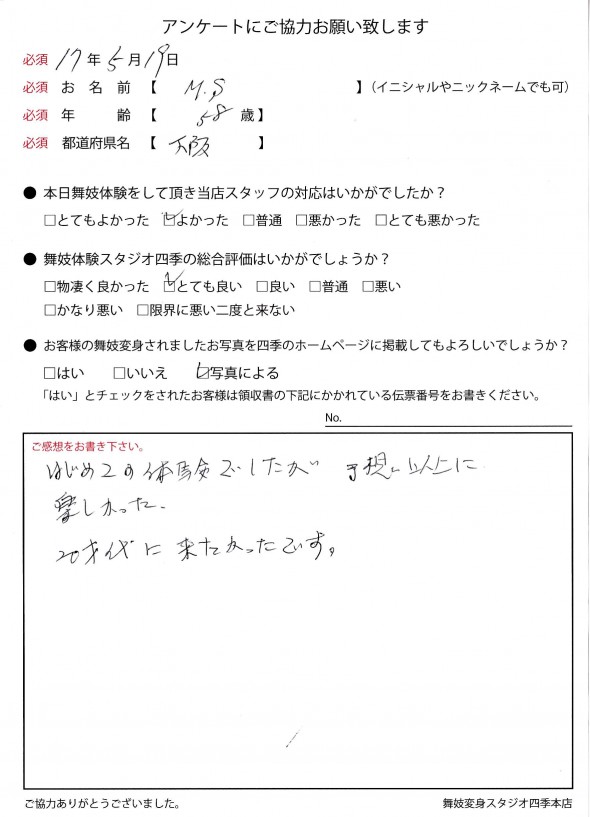 アンケートにご協力お願い致します
必須 17年5月19日
必須 お名前 【 M.S 】（イニシャルやニックネームでも可）
必須 年齢 【 58 歳】
必須 都道府県名 【 大阪 】
● 本日舞妓体験をして頂き当店スタッフの対応はいかがでしたか？
□とてもよかった ☑よかった □普通 □悪かった □とても悪かった
● 舞妓体験スタジオ四季の総合評価はいかがでしょうか？
□物凄く良かった ☑とても良い □良い □普通 □悪い
□かなり悪い □限界に悪い二度と来ない
● お客様の舞妓変身されましたお写真を四季のホームページに掲載してもよろしいでしょうか？
□はい □いいえ ☑写真による
「はい」とチェックをされたお客様は領収書の下記にかかれている伝票番号をお書きください。
No.
ご感想をお書き下さい。
はじめての体験でしたが 予想以上に
楽しかった。
20才代に来たかったです。
ご協力ありがとうございました。
舞妓変身スタジオ四季本店